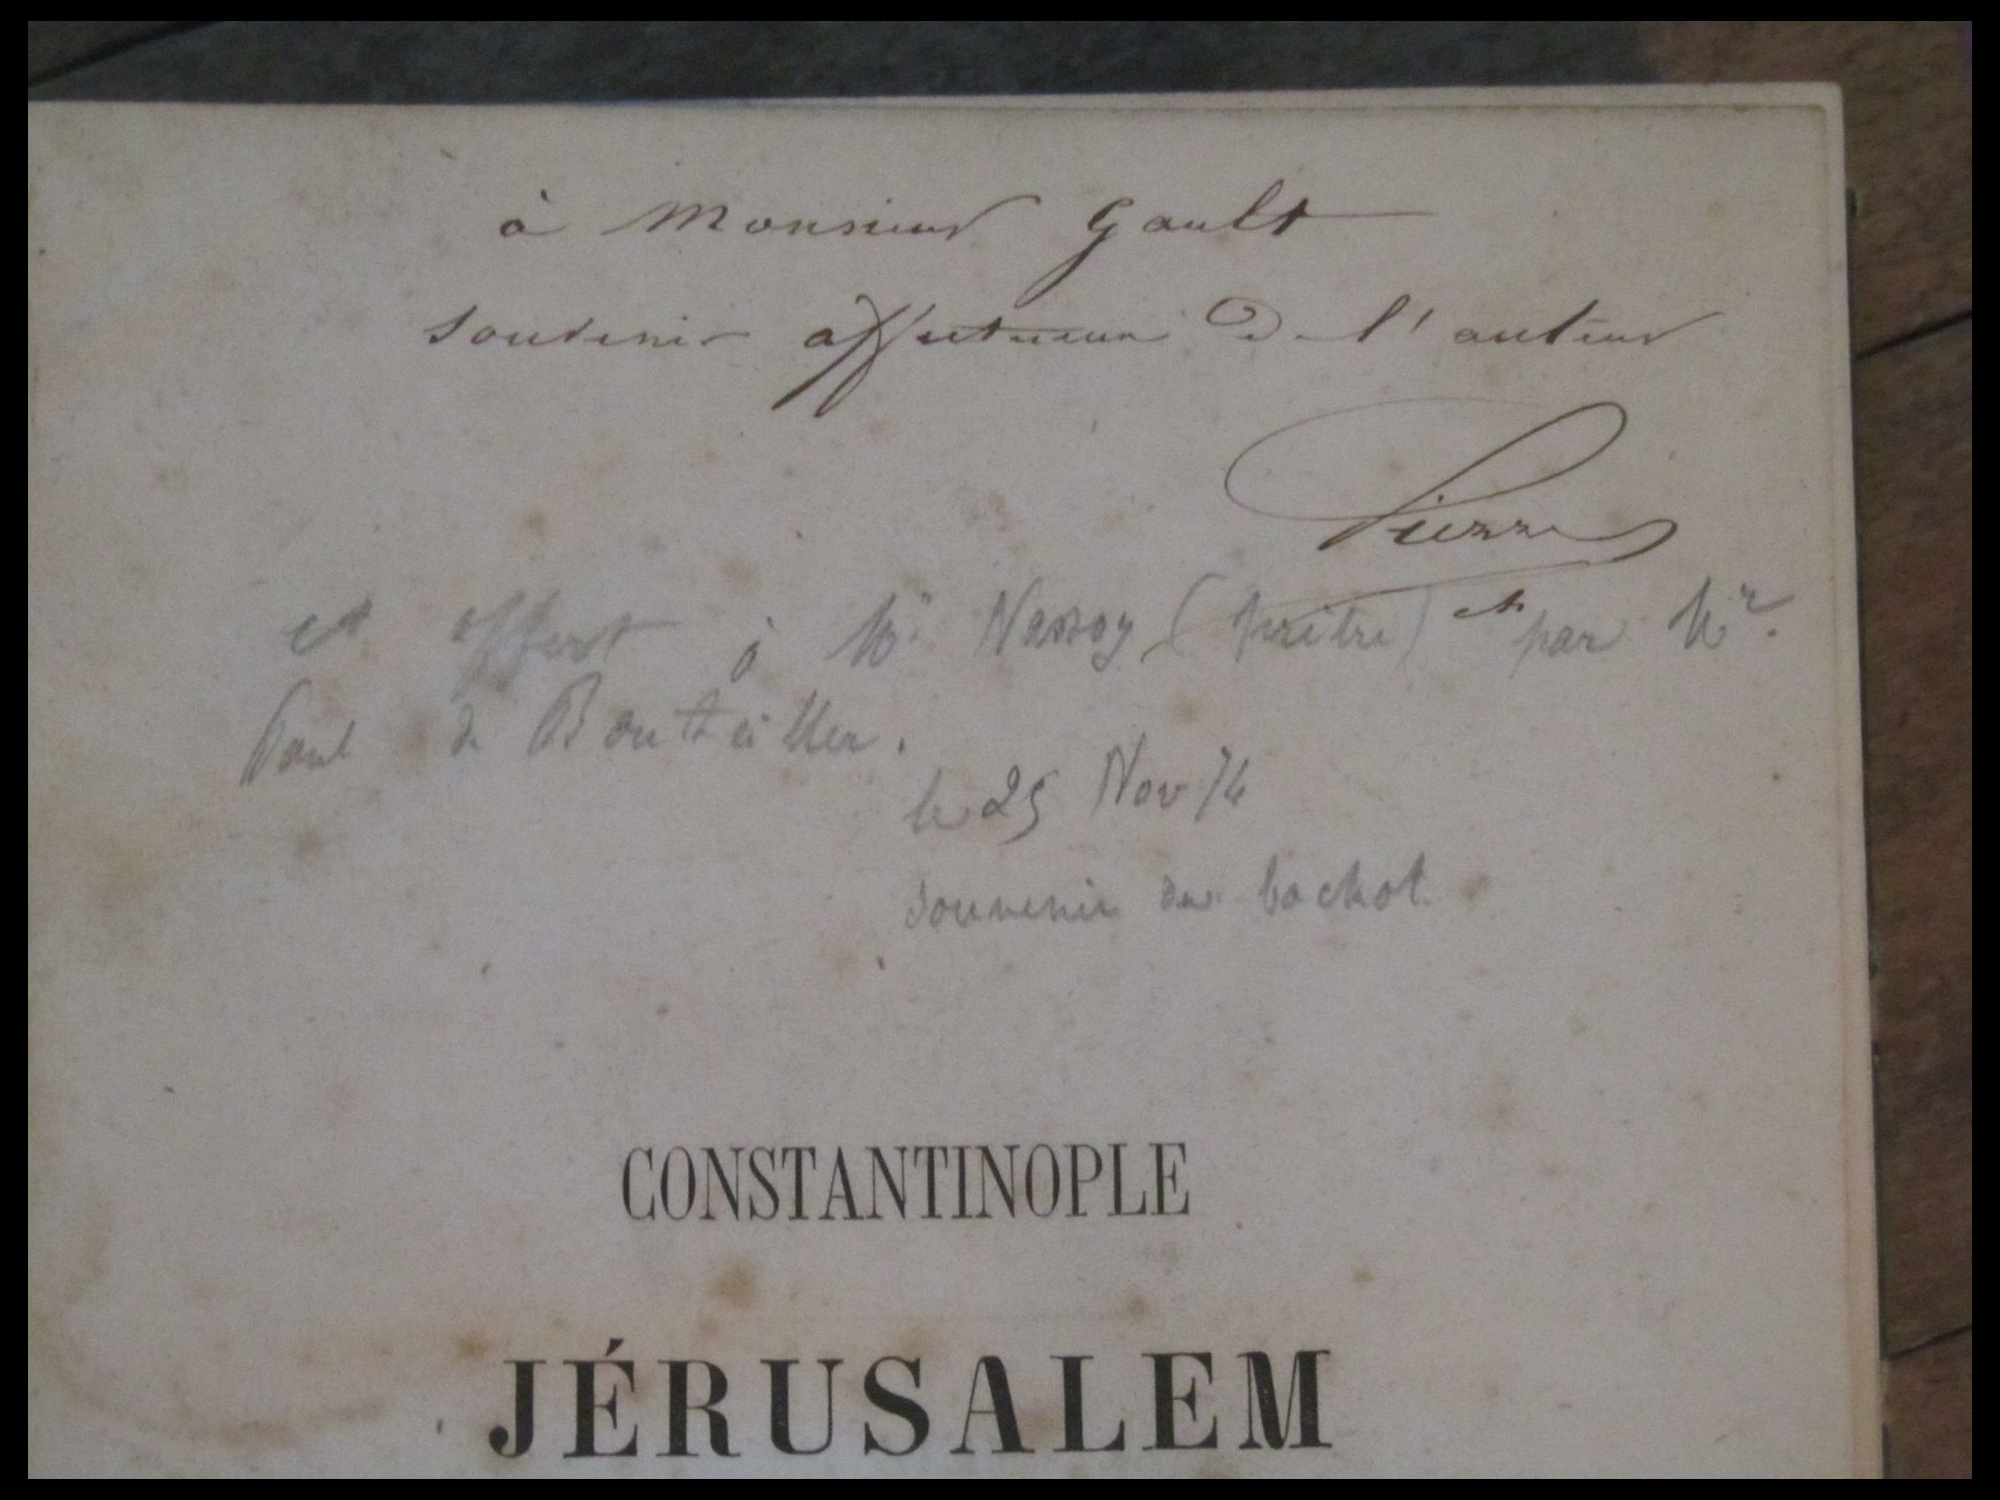 à Monsieur Gault
souvenir affectueux de l'auteur
Pierre
et offert à Mr Nassoy (prêtre) par Mr.
Paul de Bouteiller.
le 25 Nov 74
souvenir du cachot.
CONSTANTINOPLE
JÉRUSALEM